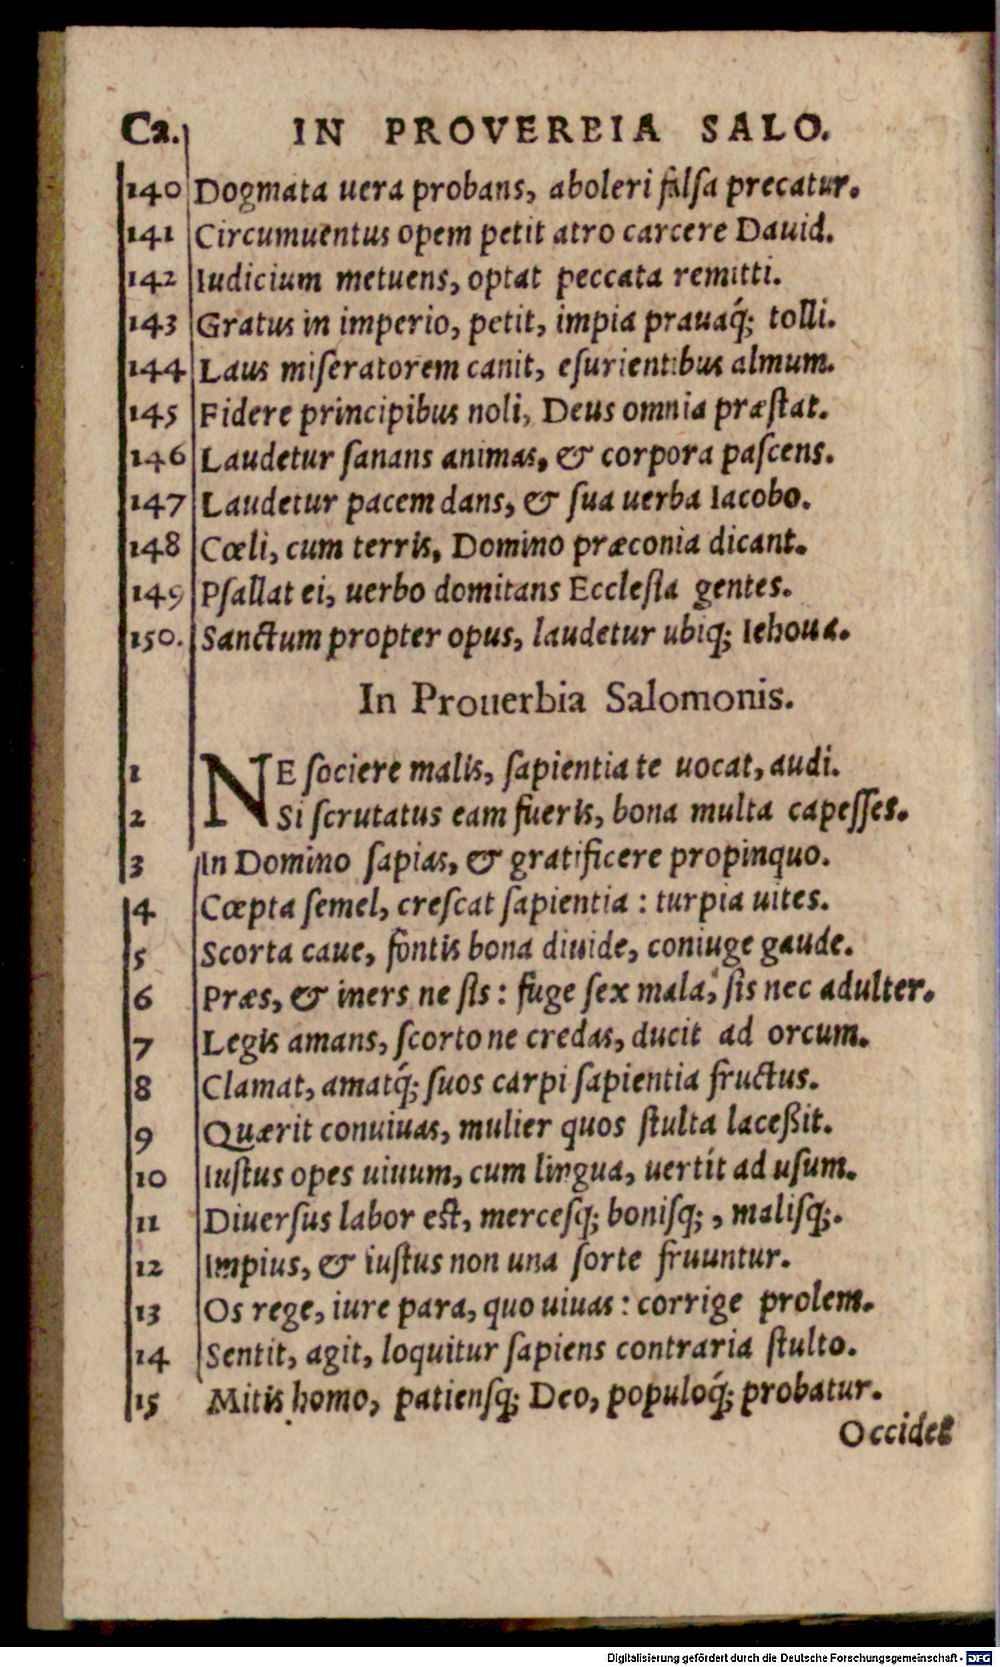 Ca. IN PROVERBIA SALO.
140 Dogmata uera probans, aboleri falſa precatur.
141 Circumuentus opem petit atro carcere Dauid.
142 Iudicium metuens, optat peccata remitti.
143 Gratus in imperio, petit, impia prauaq́; tolli.
144 Laus miſeratorem canit, eſurientibus almum.
145 Fidere principibus noli, Deus omnia præſtat.
146 Laudetur ſanans animas, & corpora paſcens.
147 Laudetur pacem dans, & ſua uerba Iacobo.
148 Cœli, cum terris, Domino præconia dicant.
149 Pſallat ei, uerbo domitans Eccleſia gentes.
150. Sanctum propter opus, laudetur ubiq; Iehoua.
In Prouerbia Salomonis.
1 NE ſociere malis, ſapientia te uocat, audi.
2 Si ſcrutatus eam fueris, bona multa capeſſes.
3 In Domino ſapias, & gratificere propinquo.
4 Cœpta ſemel, creſcat ſapientia : turpia uites.
5 Scorta caue, fontis bona diuide, coniuge gaude.
6 Præs, & iners ne ſis : fuge ſex mala, ſis nec adulter.
7 Legis amans, ſcorto ne credas, ducit ad orcum.
8 Clamat, amatq́; ſuos carpi ſapientia fructus.
9 Quærit conuiuas, mulier quos ſtulta laceßit.
10 Iuſtus opes uiuum, cum lingua, uertit ad uſum.
11 Diuerſus labor eſt, merceſq; boniſq; , maliſq;.
12 Impius, & iuſtus non una ſorte fruuntur.
13 Os rege, iure para, quo uiuas : corrige prolem.
14 Sentit, agit, loquitur ſapiens contraria ſtulto.
15 Mitis homo, patienſq; Deo, populoq́; probatur.
Occidet
Digitalisierung gefördert durch die Deutsche Forschungsgemeinschaft - DFG